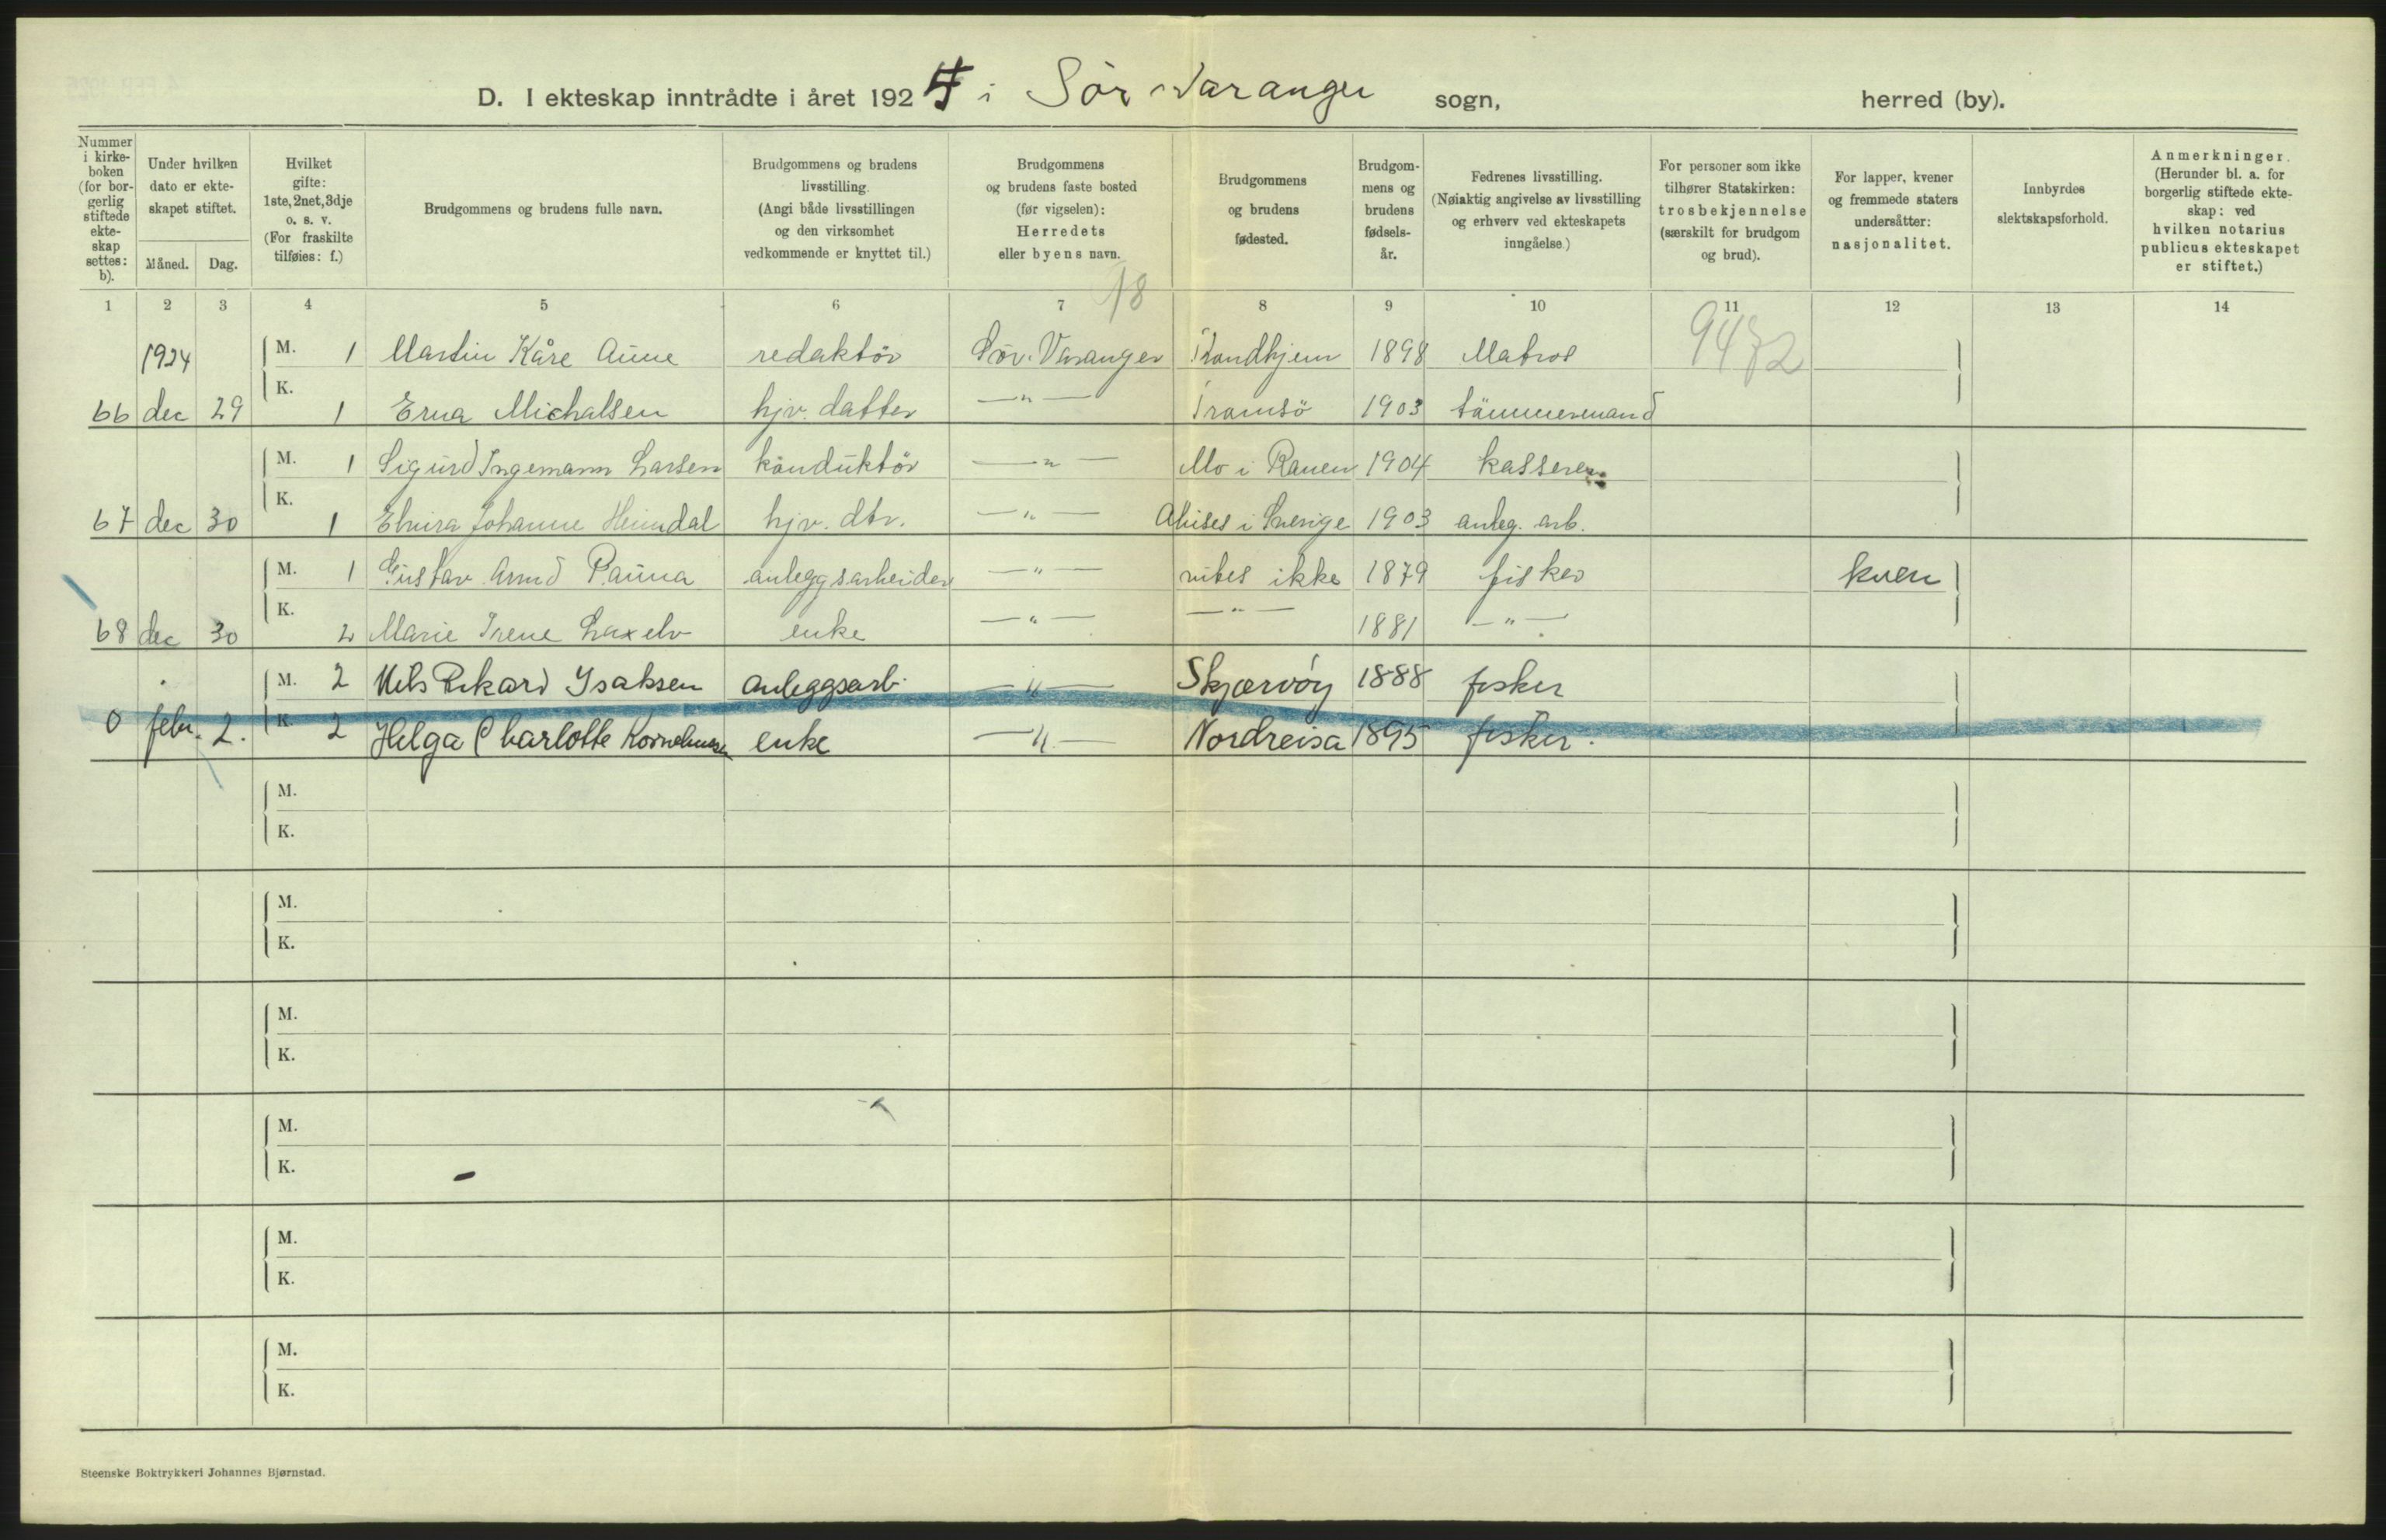 D. I ekteskap inntrådte i året 1924 i Sör Varanger sogn, herred (by).
Nummer i kirke-boken (for bor-gerlig stiftede ekte-skap settes: b).
Under hvilken dato er ekte-skapet stiftet.
Måned. Dag.
Hvilket gifte: 1ste, 2net, 3dje o. s. v. (For fraskilte tilføies: f.)
Brudgommens og brudens fulle navn.
Brudgommens og brudens livsstilling. (Angi både livsstillingen og den virksomhet vedkommende er knyttet til.)
Brudgommens og brudens faste bosted (før vigselen): Herredets eller byens navn.
Brudgommens og brudens fødested.
Brudgom-mens og brudens fødsels-år.
Fedrenes livsstilling. (Nøiaktig angivelse av livsstilling og erhverv ved ekteskapets inngåelse.)
For personer som ikke tilhører Statskirken: trosbekjennelse (særskilt for brudgom og brud).
For lapper, kvener og fremmede staters undersåtter: nasjonalitet.
Innbyrdes slektskapsforhold.
Anmerkninger. (Herunder bl. a. for borgerlig stiftede ekte-skap: ved hvilken notarius publicus ekteskapet er stiftet.)
18
1 2 3 4 5 6 7 8 9 10 11 12 13 14
1924 M. 1 Martin Kåre Aune redaktör Sör-Varanger Trondhjem 1898 Matros 9472
66 dec 29 K. 1 Erna Michalsen hjv. datter —"— Tromsö 1903 tömmermand
M. 1 Sigurd Ingemann Larsen konduktör —"— Mo i Ranen 1904 kasserer
67 dec 30 K. 1 Elvira Johanne Heimdal hjv. dtr. —"— i Sverige 1903 anleg. arb.
M. 1 Gustav Arnd Pauna anleggsarbeider —"— vites ikke 1879 fisker kven
68 dec 30 K. 2 Marie Irene Laxelv enke —"— —"— 1881 —"—
M. 2 Nils Rikard Isaksen anleggsarb. —"— Skjærvöy 1888 fisker
0 febr. 2. K. 2 Helga Charlotte Korneliussen enke —"— Nordreisa 1895 fisker.
M.
K.
M.
K.
M.
K.
M.
K.
M.
K.
M.
K.
Steenske Boktrykkeri Johannes Bjørnstad.